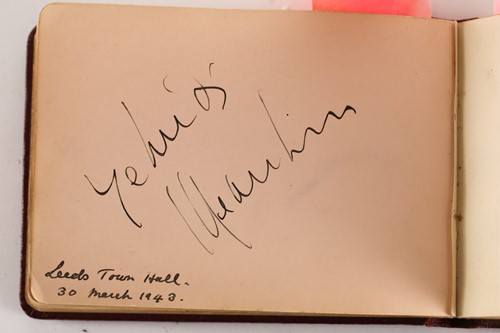 Yehudi
Menuhin
Leeds Town Hall.
30 March 1943.